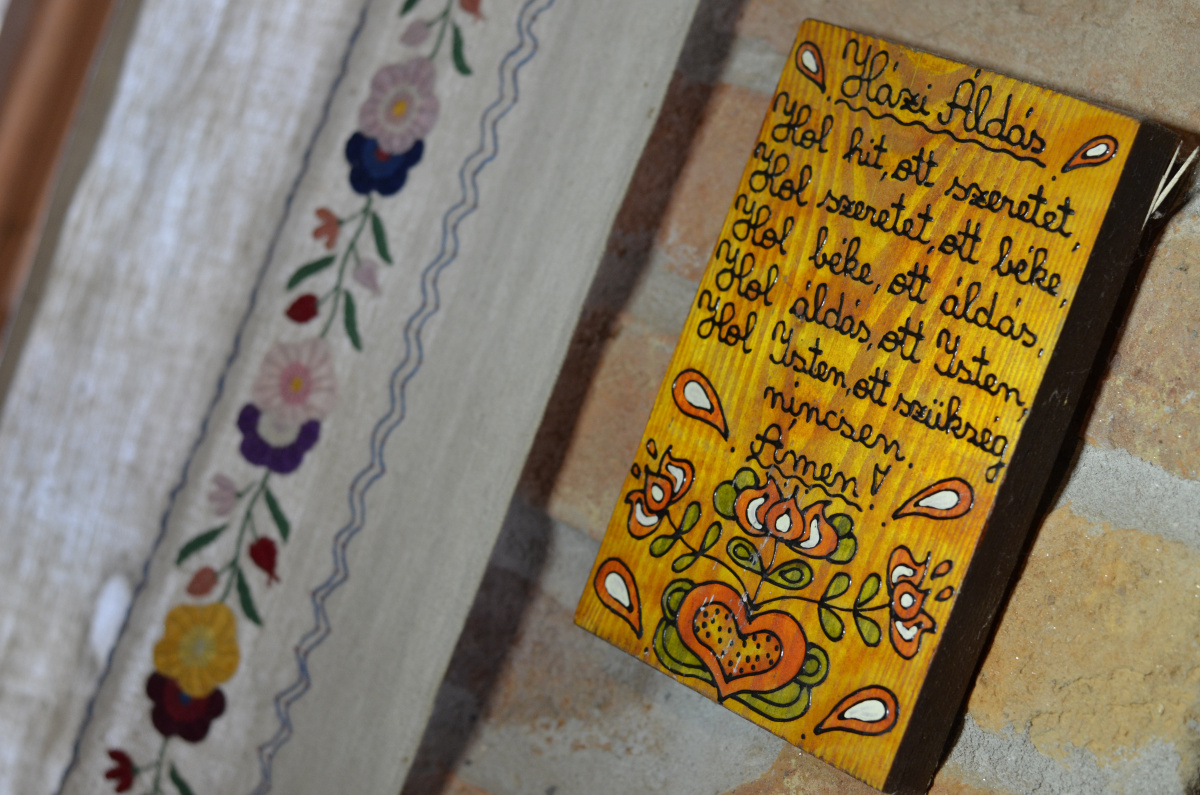 Házi Áldás
Hol hit, ott szeretet,
Hol szeretet, ott béke,
Hol béke, ott áldás,
Hol áldás, ott Isten,
Hol Isten, ott szükség
nincsen.
Ámen